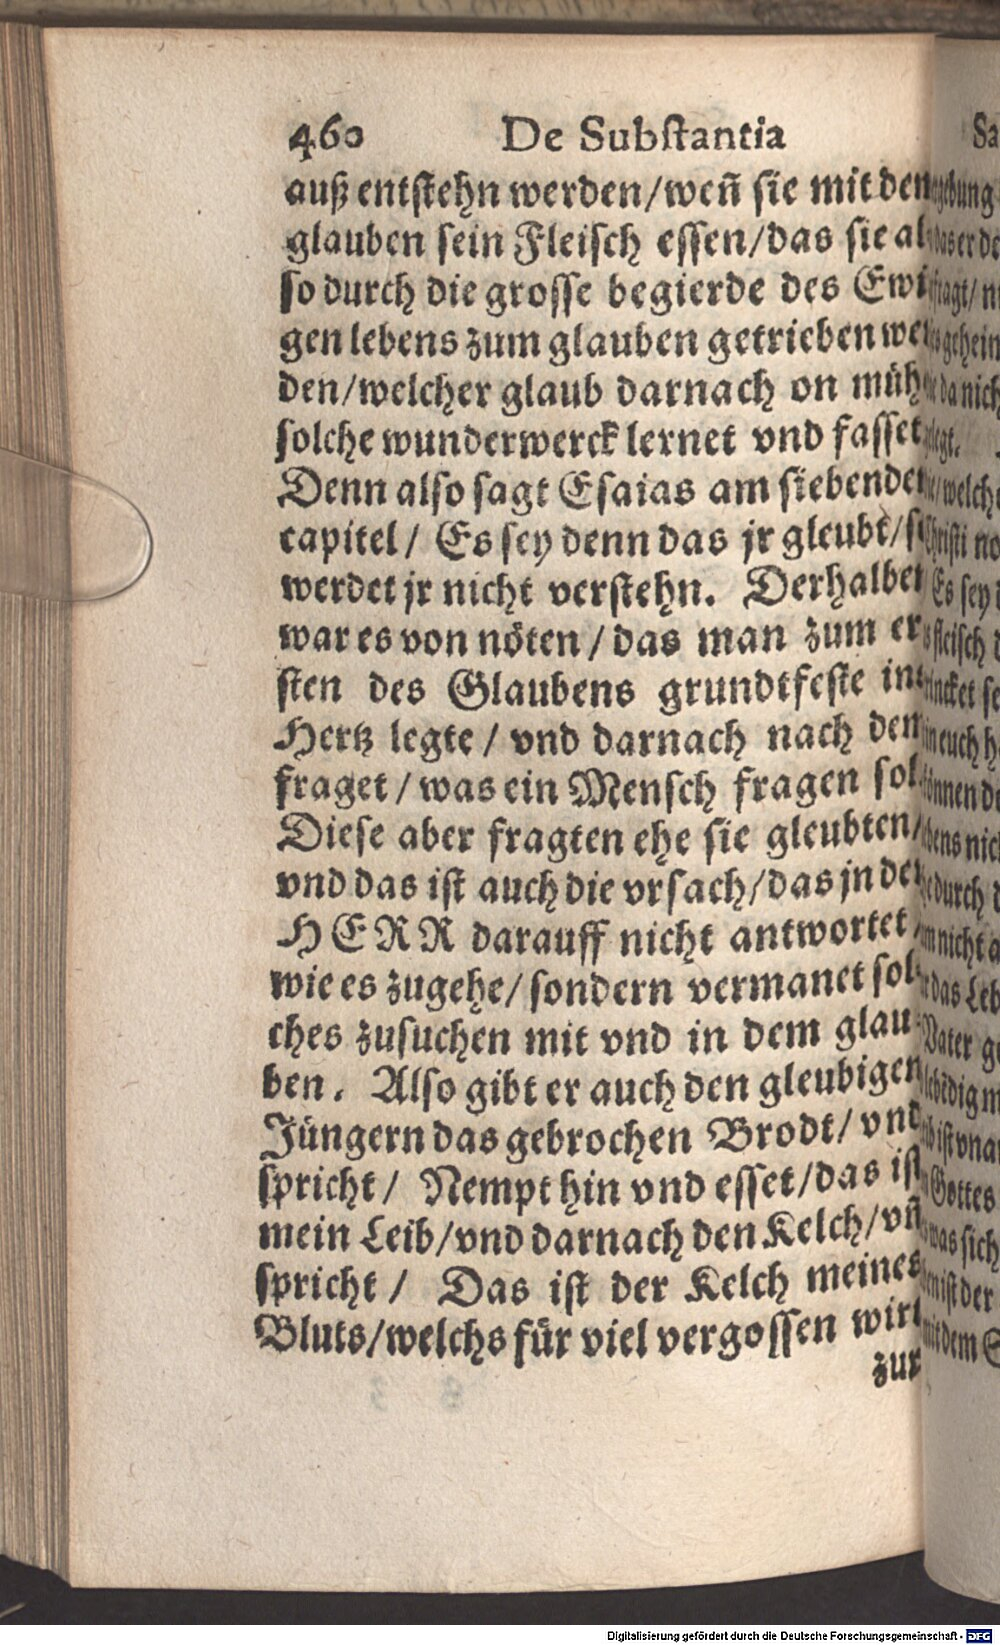 460 De Substantia
auß entstehn werden/weñ sie mit dem
glauben sein Fleisch essen/das sie al
so durch die grosse begierde des Ewi
gen lebens zum glauben getrieben wer
den/welcher glaub darnach on müh
solche wunderwerck lernet vnd fasset.
Denn also sagt Esaias am siebenden
capitel/ Es sey denn das jr gleubt/so
werdet jr nicht verstehn. Derhalben
war es von nöten/das man zum er
sten des Glaubens grundtfeste ins
Hertz legte/ vnd darnach nach dem
fraget/was ein Mensch fragen sol.
Diese aber fragten ehe sie gleubten/
vnd das ist auch die vrsach/das jn der
HERR darauff nicht antwortet/
wie es zugehe/sondern vermanet sol-
ches zusuchen mit vnd in dem glau-
ben. Also gibt er auch den gleubigen
Jüngern das gebrochen Brodt/vnd
spricht/ Nempt hin vnd esset/das ist
mein Leib/vnd darnach den Kelch/vñ
spricht/ Das ist der Kelch meines
Bluts/welchs für viel vergossen wirt
zur
Digitalisierung gefördert durch die Deutsche Forschungsgemeinschaft - DFG